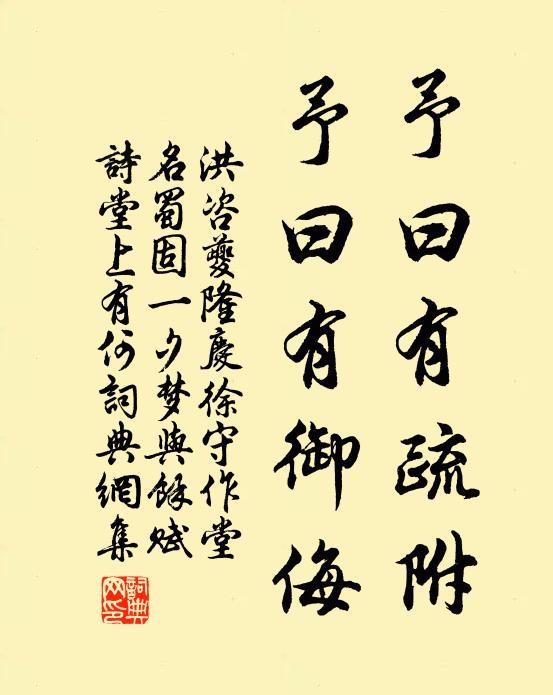 予曰有疏附
予曰有御侮
洪咨夔隆慶徐守作堂
名蜀固一夕梦與餘赋
詩堂上有何詞典網集
詞典网印